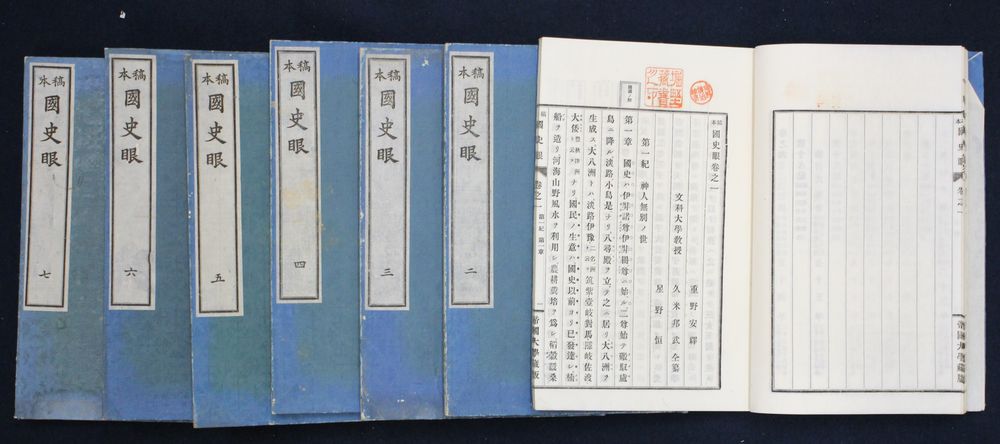 稿本
國史眼
卷之一
帝國大學藏版
稿本國史眼卷之一
文科大學教授
重野安繹
久米邦武 仝纂
星野恒
第一紀 神人無別ノ世
第一章 國史ハ伊弉諾尊伊弉册尊ニ始ル二尊始テ磤馭盧
島ニ降ル淡路小島是ナリ八尋殿ヲ立テ之ニ居リ大八洲ヲ
生成ス大八洲トハ淡路伊豫二名洲筑紫壹岐對馬隱岐佐渡
大倭豐秋津洲ナリ國民ノ生意ハ國史以前ヨリ已發達シ
船ヲ造リ河海山野風水ヲ利用シ農耕ヲ爲シ稻穀蠶桑
稿本國史眼 卷之一 第一紀 第一章
一
帝國大學藏版
稿本
國史眼
二
稿本
國史眼
三
稿本
國史眼
四
稿本
國史眼
五
稿本
國史眼
六
稿本
國史眼
七